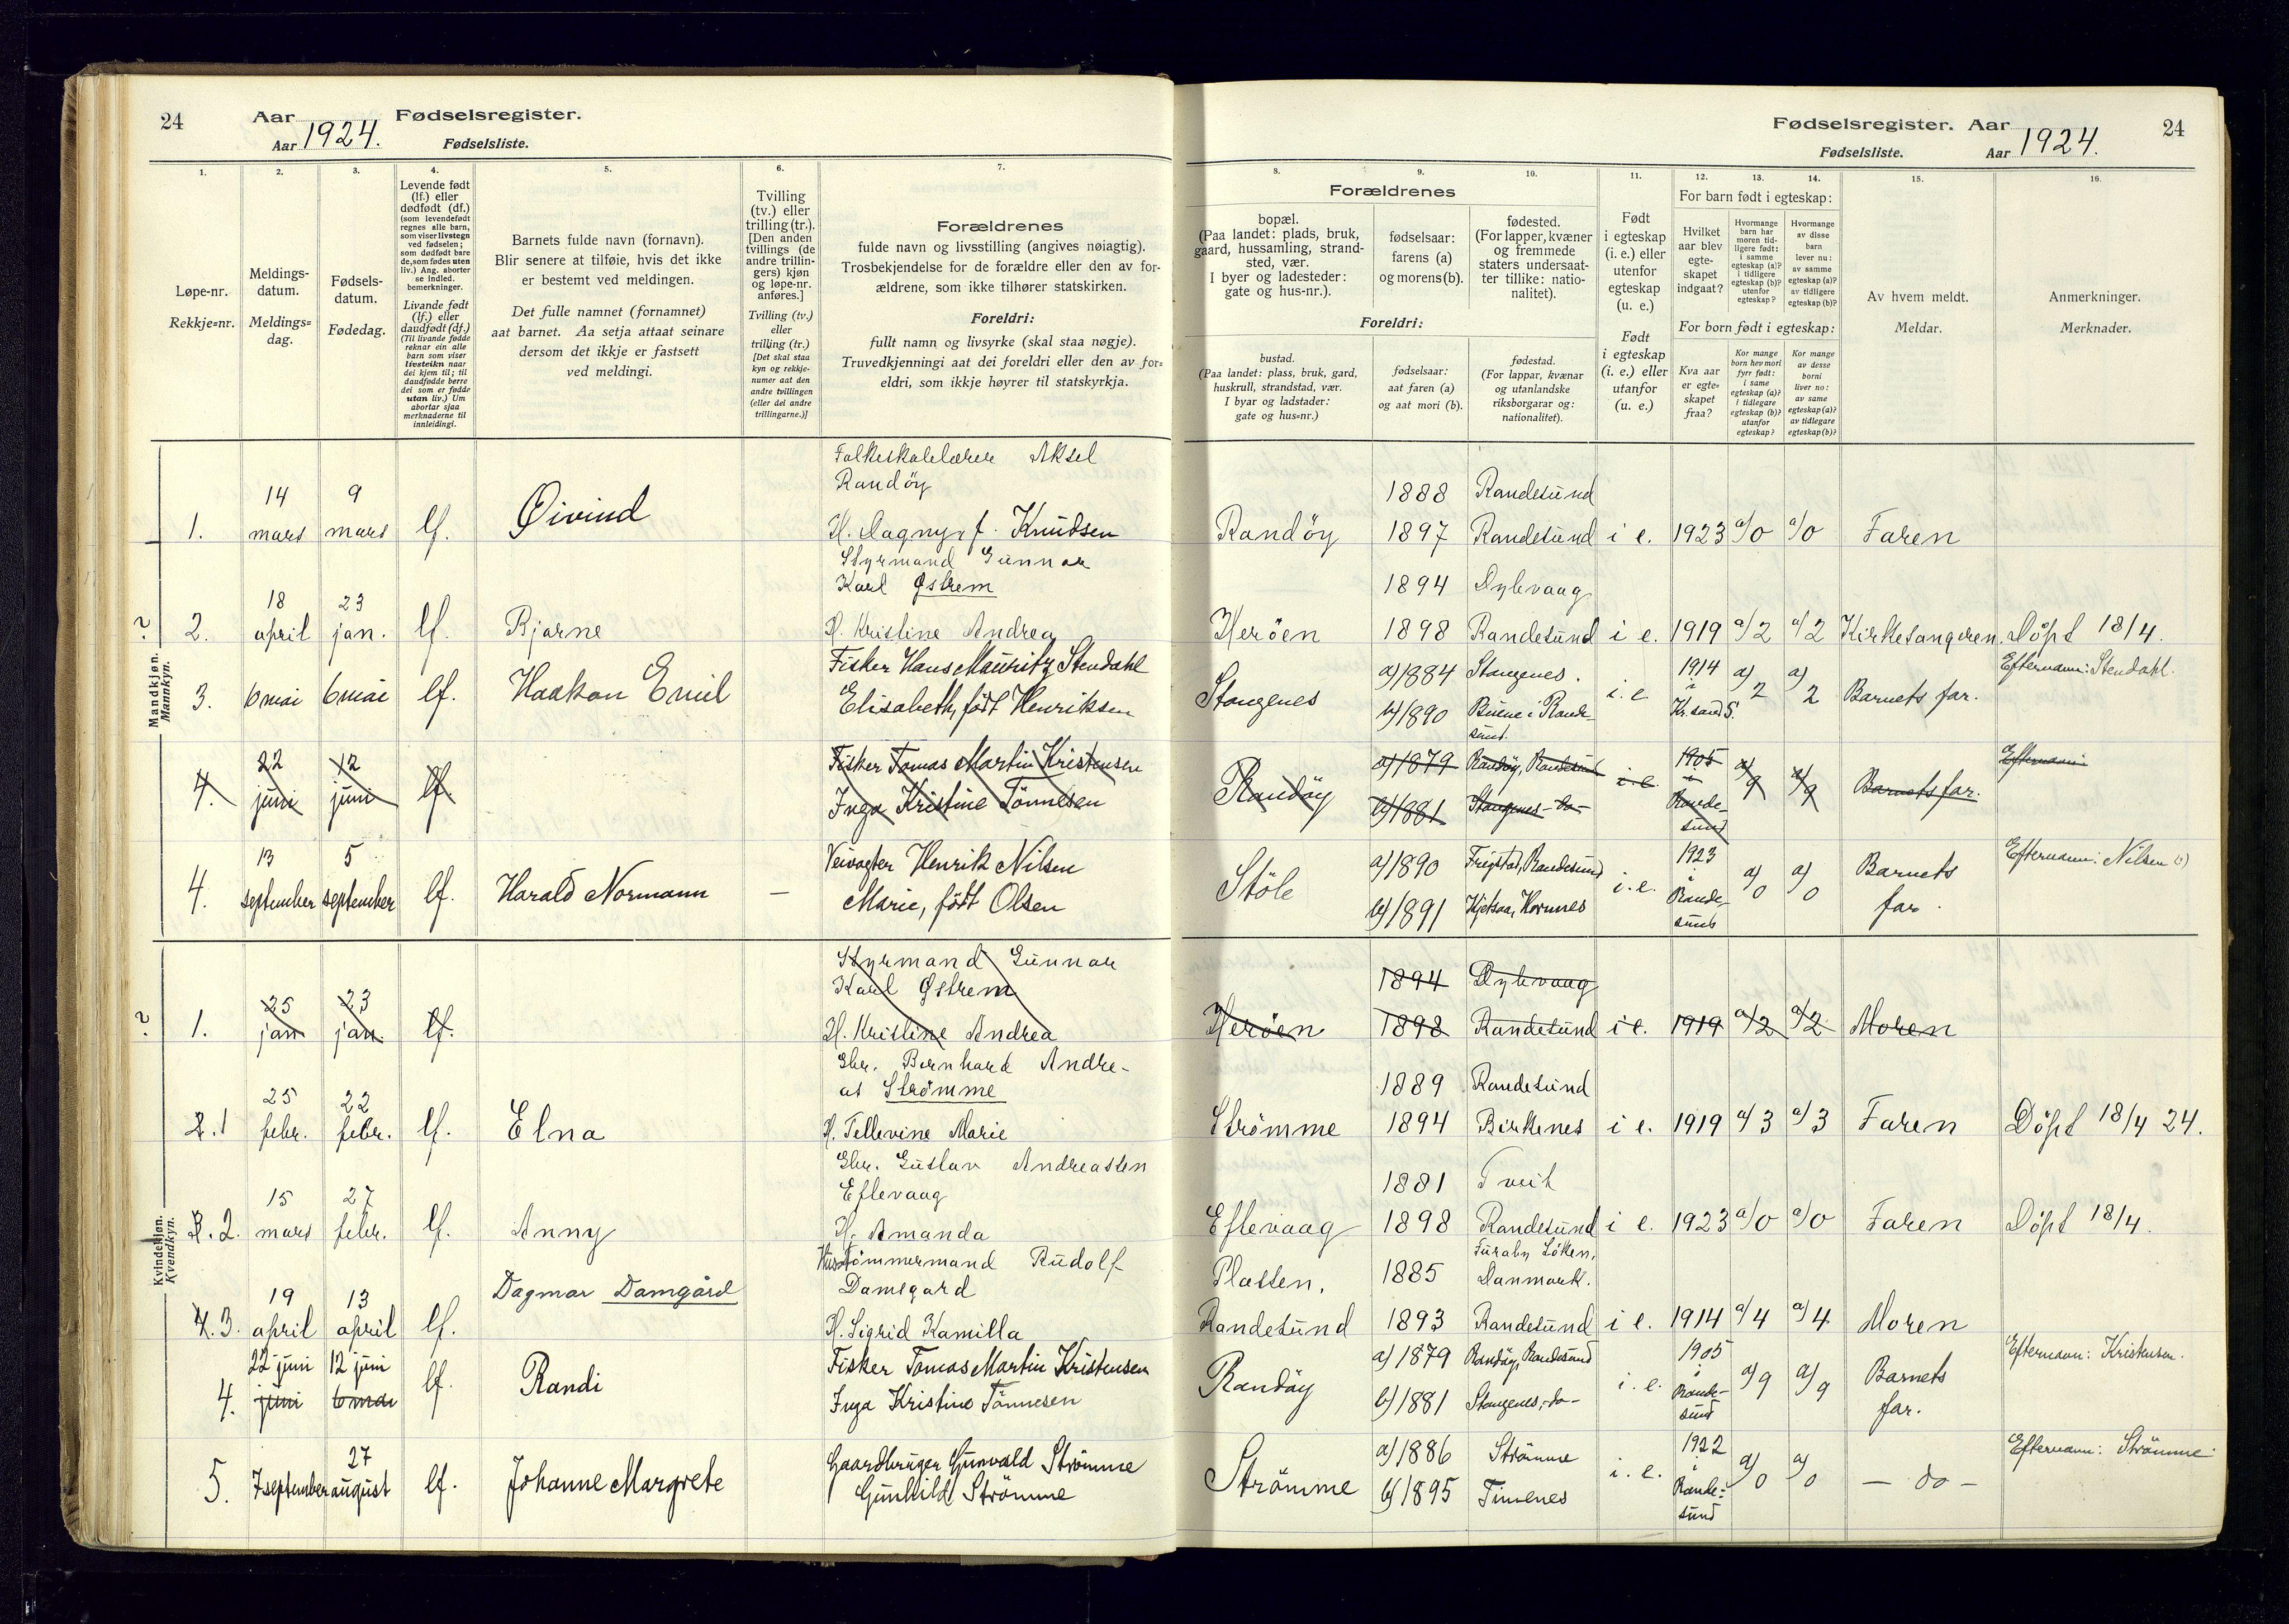 24
Aar 1924. Fødselsregister.
Aar Fødselsliste.
1. 2. 3. 4. 5. 6. 7.
Løpe-nr.
Rekkje=nr.
Meldings-
datum.
Meldings=
dag.
Fødsels-
datum.
Fødedag.
Levende født
(lf.) eller
dødfødt (df.)
(som levendefødt
regnes alle barn,
som viser livstegn
ved fødselen;
som dødfødt bare
de, som fødes uten
liv.) Ang. aborter
se indled.
bemerkninger.
Livande født
(lf.) eller
daudfødt (df.)
(Til livande fødde
reknar ein alle
barn som viser
livsteikn naar
dei kjem til; til
daudfødde berre
dei som er fødde
utan liv.) Um
abortar sjaa
merknaderne til
innleidingi.
Barnets fulde navn (fornavn).
Blir senere at tilføie, hvis det ikke
er bestemt ved meldingen.
Det fulle namnet (fornamnet)
aat barnet. Aa setja attaat seinare
dersom det ikkje er fastsett
ved meldingi.
Tvilling
(tv.) eller
trilling (tr.).
[Den anden
tvillings (de
andre trillin-
gers) kjøn
og løpe-nr.
anføres.]
Tvilling (tv.)
eller
trilling (tr.)
[Det skal staa
kyn og rekkje-
numer aat den
andre tvillingen
(eller dei andre
trillingarne.)]
Forældrenes
fulde navn og livsstilling (angives nøiagtig).
Trosbekjendelse for de forældre eller den av for-
ældrene, som ikke tilhører statskirken.
Foreldri:
fullt namn og livsyrke (skal staa nøgje).
Truvedkjenningi aat dei foreldri eller den av for=
eldri, som ikkje høyrer til statskyrkja.
Mandkjøn.
Mannkyn.
1. 14 mars 9 mars lf. Öivind
Folkeskolelærer Aksel
Randöy
H. Dagny, f. Knudsen
? 2. 18 april 23 jan. lf. Bjarne
Styrmand Gunnar
Karl Østrem
H. Kristine Andrea
3. 6 mai 6 mai lf. Haakon Emil
Fisker Hans Mauritz Stendahl
Elisabeth, født Henriksen
4. 22 juni 12 juni lf.
Fisker Tomas Martin Kristensen
Inga Kristine Tönnesen
4. 13 september 5 september lf. Harald Normann —
Veivogter Henrik Nilsen
Marie, født Olsen
Kvindekjøn.
Kvendkyn.
? 1. 25 jan 23 jan. lf.
Styrmand Gunnar
Karl Østrem
H. Kristine Andrea
2. 1 25 febr. 22 febr. lf. Elna
Gbr. Bernhard Andre-
as Strömme
H. Tellevine Marie
3. 2. 15 mars 27 febr. lf. Anny
Gbr. Gustav Andreassen
Eftevaag
H. Amanda
4. 3. 19 april 13 april lf. Dagmar Damgård
Hustömmermand Rudolf
Damsgard
H. Sigrid Kamilla
4. 22 juni juni 12 juni 6 mai lf. Randi
Fisker Tomas Martin Kristensen
Inga Kristine Tönnesen
5. 7 september 27 august lf. Johanne Margrete
Gaardbruger Gunvald Strömme
Gunhild Strömme
Fødselsregister. Aar 1924. 24
Fødselsliste. Aar
8. 9. 10. 11. 12. 13. 14. 15. 16.
Forældrenes
bopæl.
(Paa landet: plads, bruk,
gaard, hussamling, strand-
sted, vær.
I byer og ladesteder:
gate og hus-nr.).
fødselsaar:
farens (a)
og morens (b).
fødested.
(For lapper, kvæner
og fremmede
staters undersaat-
ter tillike: natio-
nalitet).
Foreldri:
bustad.
(Paa landet: plass, bruk, gard,
huskrull, strandstad, vær.
I byar og ladstader:
gate og hus=nr.)
fødselsaar:
aat faren (a)
og aat mori (b).
fødestad.
(For lappar, kvænar
og utanlandske
riksborgarar og:
nationalitet).
Født
i egteskap
(i. e.) eller
utenfor
egteskap
(u. e.)
Født
i egteskap
(i. e.) eller
utanfor
(u. e.)
For barn født i egteskap:
Hvilket
aar blev
egte-
skapet
indgaat?
Hvormange
barn har
moren tid-
ligere født:
i samme
egteskap (a)?
i tidligere
egteskap (b)?
utenfor
egteskap?
Hvormange
av disse
barn
lever nu:
av samme
egteskap (a)?
av tidligere
egteskap (b)?
For born født i egteskap:
Kva aar
er egte=
skapet
fraa?
Kor mange
born hev mori
fyrr født:
i same
egteskap (a)?
i tidlegare
egteskap (b)?
utanfor
egteskap?
Kor mange
av desse
borni
liver no:
av same
egteskap (a)?
av tidlegare
egteskap (b)?
Av hvem meldt.
Meldar.
Anmerkninger.
Merknader.
Randöy 1888 Randesund
1897 Randesund i e. 1923 a/0 a/0 Faren
Heröen 1894 Dybvaag
1898 Randesund i e. 1919 a/2 a/2 Kirkesangeren. Döpt 18/4.
Stangenes a) 1884 Stangenes.
b) 1890 Buene i Rande-
sund. i. e. 1914 i Kr.sand S. a) 2 a) 2 Barnets far. Efternavn: Stendahl.
Randöy a) 1879 Randöy, Randesund
b) 1881 Stangenes -do- i. e. 1905 i Rande-
sund a) 9 a) 9 Barnets far. Efternavn:
Stöle a) 1890 Frigstad, Randesund
b) 1891 Kjetsaa, Hornnes i. e. 1923 i Rande-
sund a) 0 a) 0 Barnets
far. Efternavn: Nilsen
Heröen 1894 Dybvaag
1898 Randesund i e. 1919 a/2 a/2 Moren
Strömme 1889 Randesund
1894 Birkenes i e. 1919 a/3 a/3 Faren Döpt 18/4 24.
Eftevaag 1881 Tveit
1898 Randesund i e. 1923 a/0 a/0 Faren Döpt 18/4.
Plassen,
Randesund 1885 Löken,
Danmark.
1893 Randesund i e. 1914 a/4 a/4 Moren
Randöy a) 1879 Randöy, Randesund
b) 1881 Stangenes, -do- i. e. 1905 i Rande-
sund a) 9 a) 9 Barnets
far. Efternavn: Kristensen.
Strömme a) 1886 Strömme
b) 1895 Timenes i. e. 1922 i Rande=
sund a) 0 a) 0 — do — Efternavn: Strömme